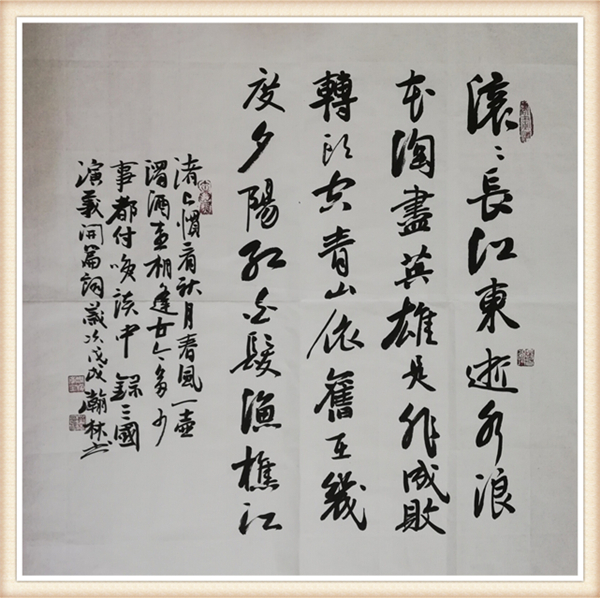 滚〻長江東逝水浪
花淘盡英雄是非成敗
轉頭空青山依舊在幾
度夕陽紅白髮漁樵江
渚上慣看秋月春風一壺
濁酒喜相逢古今多少
事都付笑談中 錄三國
演義開篇詞歲次戊戌翰林书